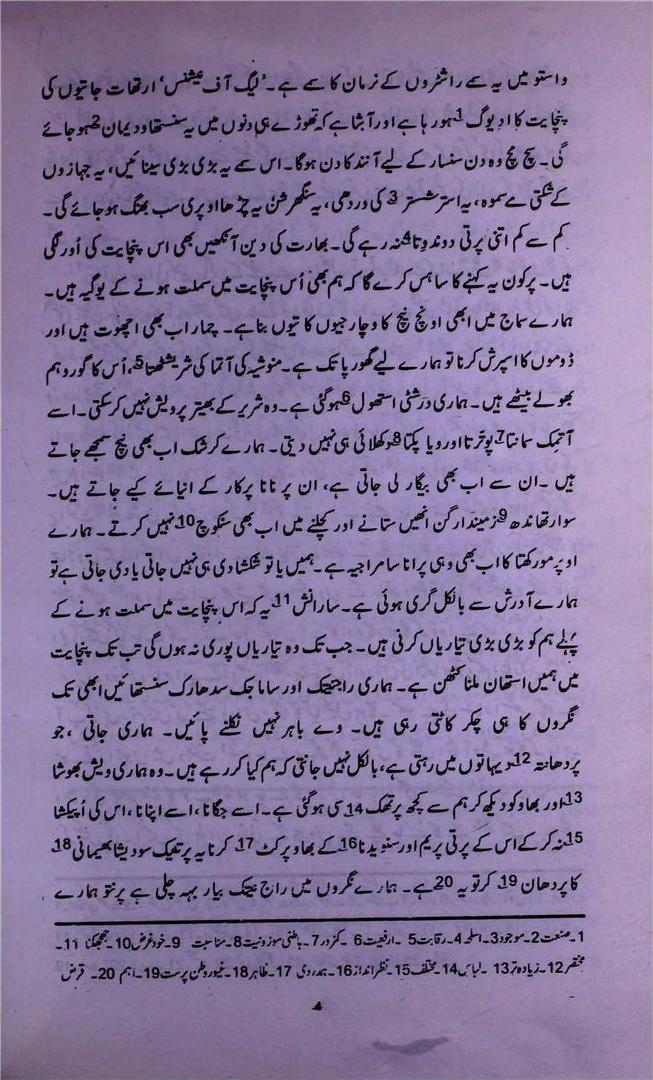 واستو میں یہ سمے راشٹروں کے نرمان کا سمے ہے۔ 'لیگ آف نیشنس' ارتھات جاتیوں کی
پنچایت کا ادیوگ 1 ہورہا ہے اور آشا ہے کہ تھوڑے ہی دنوں میں یہ سنستھا ودیمان 2 ہوجائے
گی۔ سچ مچ وہ دن سنسار کے لیے آنند کا دن ہوگا۔ اس سمے یہ بڑی بڑی سینائیں، یہ جہازوں
کے شکتی مے سموہ، یہ استر شستر 3 کی وردھی، یہ سنگھرشن یہ چڑھا اوپری سب بھنگ ہوجائے گی۔
کم سے کم اتنی پرتی دوندوتا 4 نہ رہے گی۔ بھارت کی دین آنکھیں بھی اس پنچایت کی اُور لگی
ہیں۔ پرکون یہ کہنے کا ساہس کرے گا کہ ہم بھی اُس پنچایت میں سملت ہونے کے یوگیہ ہیں۔
ہمارے سماج میں ابھی اونچ نیچ کا وچار جیوں کا تیوں بنا ہے۔ چمار اب بھی اچھوت ہیں اور
ڈوموں کا اسپرش کرنا تو ہمارے لیے گھور پاتک ہے۔ منوشیہ کی آتما کی شریشٹھتا 5، اُس کا گورو ہم
بھولے بیٹھے ہیں۔ ہماری درشٹی استھول 6 ہوگئی ہے۔ وہ شریر کے بھیتر پرویش نہیں کرسکتی۔ اسے
آتمک سمانتا 7 پوترتا اور ویاپکتا 8 دکھلائی ہی نہیں دیتی۔ ہمارے کرشک اب بھی نیچ سمجھے جاتے
ہیں ۔ان سے اب بھی بیگار لی جاتی ہے، ان پر نانا پرکار کے انیائے کیے جاتے ہیں۔
سوارتھاندھ 9 زمیندارگن انھیں ستانے اور کچلنے میں اب بھی سنکوچ 10 نہیں کرتے ۔ ہمارے
اوپر مورکھتا کا اب بھی وہی پرانا سامراجیہ ہے۔ ہمیں یا تو شکشا دی ہی نہیں جاتی یا دی جاتی ہے تو
ہمارے آدرش سے بالکل گری ہوئی ہے۔ سارانش 11 یہ کہ اس پنچایت میں سملت ہونے کے
پہلے ہم کو بڑی بڑی تیاریاں کرنی ہیں۔ جب تک وہ تیاریاں پوری نہ ہوں گی تب تک پنچایت
میں ہمیں استھان ملنا کٹھن ہے۔ ہماری راجنیتک اور ساماجک سدھارک سنستھائیں ابھی تک
نگروں کا ہی چکر کاٹتی رہی ہیں۔ وے باہر نہیں نکلنے پائیں۔ ہماری جاتی ،جو
پردھانتہ 12 دیہاتوں میں رہتی ہے، بالکل نہیں جانتی کہ ہم کیا کررہے ہیں۔ وہ ہماری ویش بھوشا
13 اور بھاو کو دیکھ کر ہم سے کچھ پرتھک 14 سی ہوگئی ہے۔ اسے جگانا، اسے اپنانا، اس کی اُپیکشا
15 نہ کرکے اس کے پرتی پریم اور سنویدنا 16 کے بھاو پرکٹ 17 کرنا یہ پرتیک سودیشابھیمانی 18
کا پردھان 19 کرتویہ 20 ہے۔ ہمارے نگروں میں راج نیتک بیار بہہ چلی ہے پرنتو ہمارے
1۔صنعت 2۔موجود 3۔اسلحہ 4۔رقابت 5 ۔ارفعیت 6 ۔کمزور 7۔باطنی موزونیت 8۔مناسبت 9۔خودغرض 10۔جھجکنا 11۔
مختصر 12۔زیادہ تر 13 ۔لباس 14۔مختلف 15۔نظرانداز 16۔ہمدردی 17۔ظاہر 18۔غیور وطن پرست 19۔اہم 20۔ فرض
4